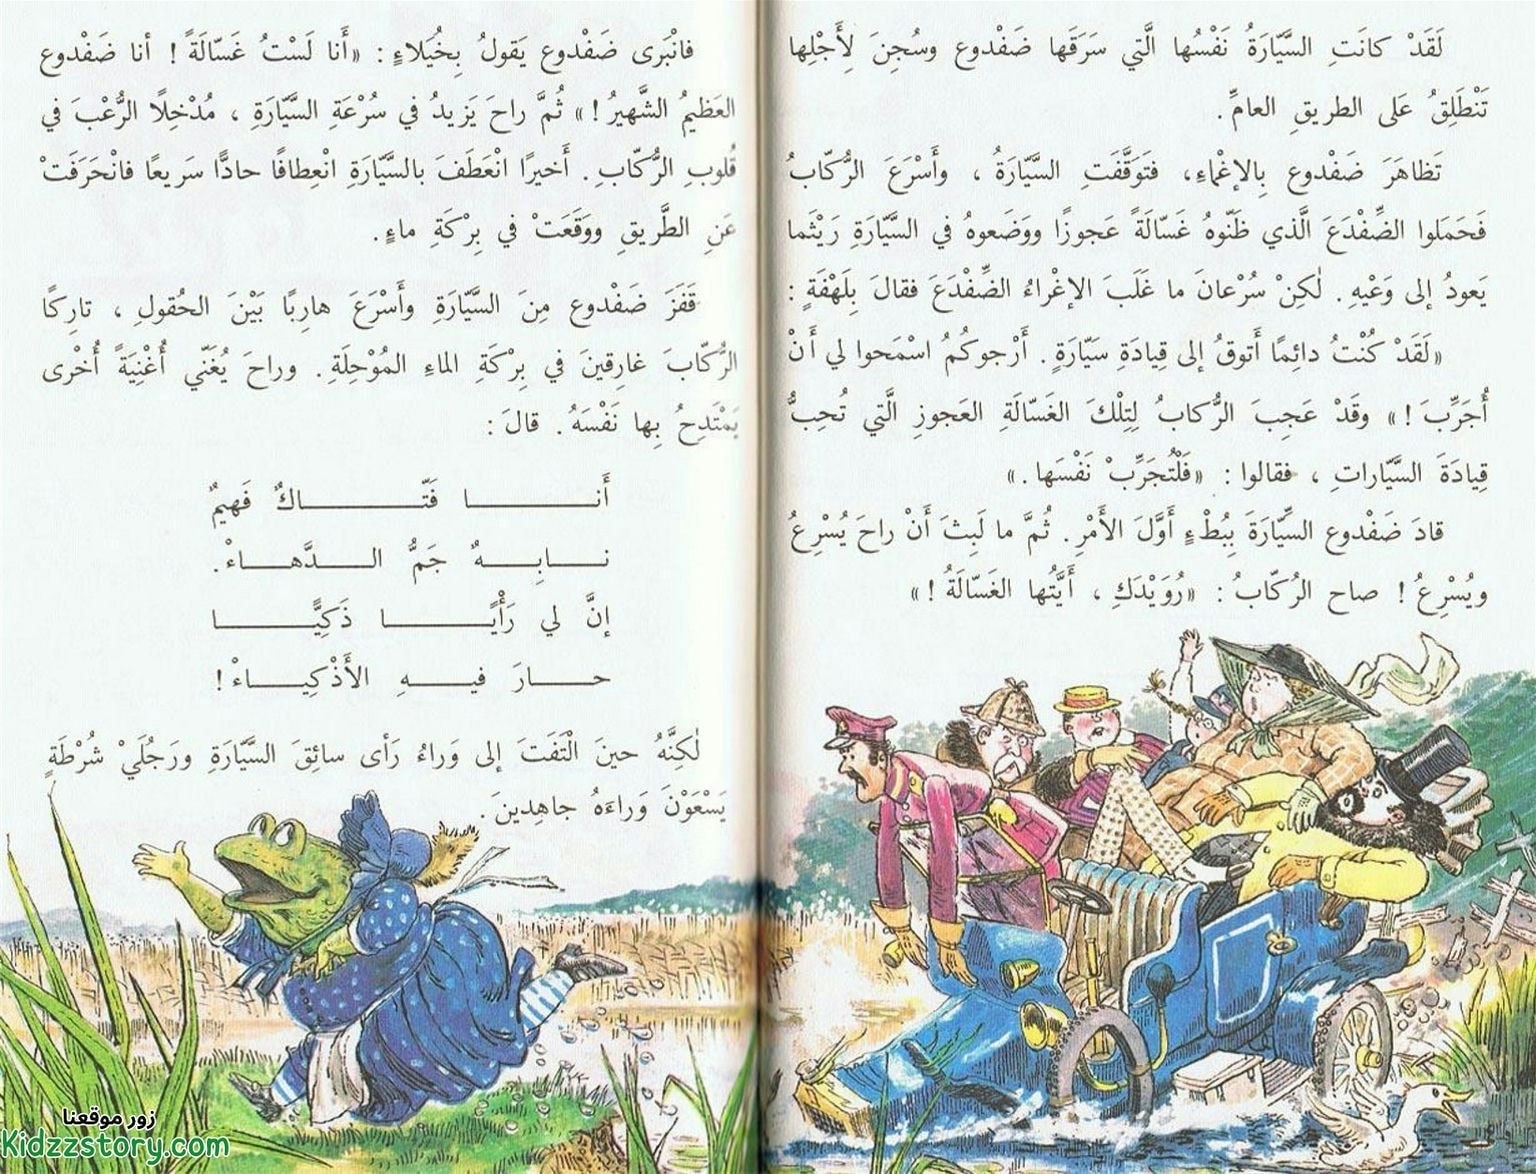 لَقَدْ كانَتِ السَّيّارَةُ نَفْسُها الَّتي سَرَقَها ضَفْدوع وسُجِنَ لِأَجْلِها
تَنْطَلِقُ عَلى الطريقِ العامِّ.
تَظاهَرَ ضَفْدوع بِالإغْماءِ، فتَوَقَّفَتِ السَّيّارَةُ ، وأَسْرَعَ الرُّكّابُ
فَحَمَلوا الضِّفْدَعَ الَّذي ظَنّوهُ غَسّالَةً عَجوزًا ووَضَعوهُ في السَّيّارَةِ رَيْثَما
يَعودُ إلى وَعْيِهِ . لٰكِنْ سُرْعانَ ما غَلَبَ الإغْراءُ الضِّفْدَعَ فقالَ بِلَهْفَةٍ :
«لَقَدْ كُنْتُ دائِمًا أَتوقُ إلى قِيادَةِ سَيّارَةٍ . أَرْجوكُمُ اسْمَحوا لي أَنْ
أُجَرِّبَ !» وقَدْ عَجِبَ الرُّكابُ لِتِلْكَ الغَسّالَةِ العَجوزِ الَّتي تُحِبُّ
قِيادَةَ السَّيّاراتِ ، فقالوا : «فَلْتُجَرِّبْ نَفْسَها .»
قادَ ضَفْدوع السَّيّارَةَ بِبُطْءٍ أَوَّلَ الأَمْرِ. ثُمَّ ما لَبِثَ أَنْ راحَ يُسْرِعُ
ويُسْرِعُ ! صاح الرُكّابُ : «رُوَيْدَكِ ، أَيَّتُها الغَسّالَةُ !»
فانْبَرى ضَفْدوع يَقولُ بِخُيَلاءٍ : «أَنا لَسْتُ غَسّالَةً ! أنا ضَفْدوع
العَظيمُ الشَّهيرُ !» ثُمَّ راحَ يَزيدُ في سُرْعَةِ السَّيّارَةِ ، مُدْخِلًا الرُّعْبَ في
قُلوبِ الرُّكّابِ . أَخيرًا انْعَطَفَ بالسَّيّارَةِ انْعِطافًا حادًّا سَريعًا فانْحَرَفَتْ
عَنِ الطَّريقِ ووَقَعَتْ في بِرْكَةِ ماءٍ.
قَفَزَ ضَفْدوع مِنَ السَّيّارَةِ وأَسْرَعَ هارِبًا بَيْنَ الحُقولِ ، تارِكًا
الرُّكّابَ غارِقينَ في بِرْكَةِ الماءِ المُوْحِلَةِ. وراحَ يُغَنّي أُغْنِيَةً أُخْرى
يَمْتَدِحُ بِها نَفْسَهُ . قالَ :
أَنـا فَتّـاكٌ فَهيمٌ
نـابِـهٌ جَمُّ الـدَّهـاءْ.
إنَّ لي رَأْيًـا ذَكِيًّـا
حـارَ فيـهِ الأَذْكِيـاءْ !
لٰكِنَّهُ حينَ الْتَفَتَ إلى وَراءُ رَأى سائِقَ السَّيّارَةِ ورَجُلَيْ شُرْطَةٍ
يَسْعَوْنَ وَراءَهُ جاهِدينَ.
زور موقعنا
Kidzzstory.com